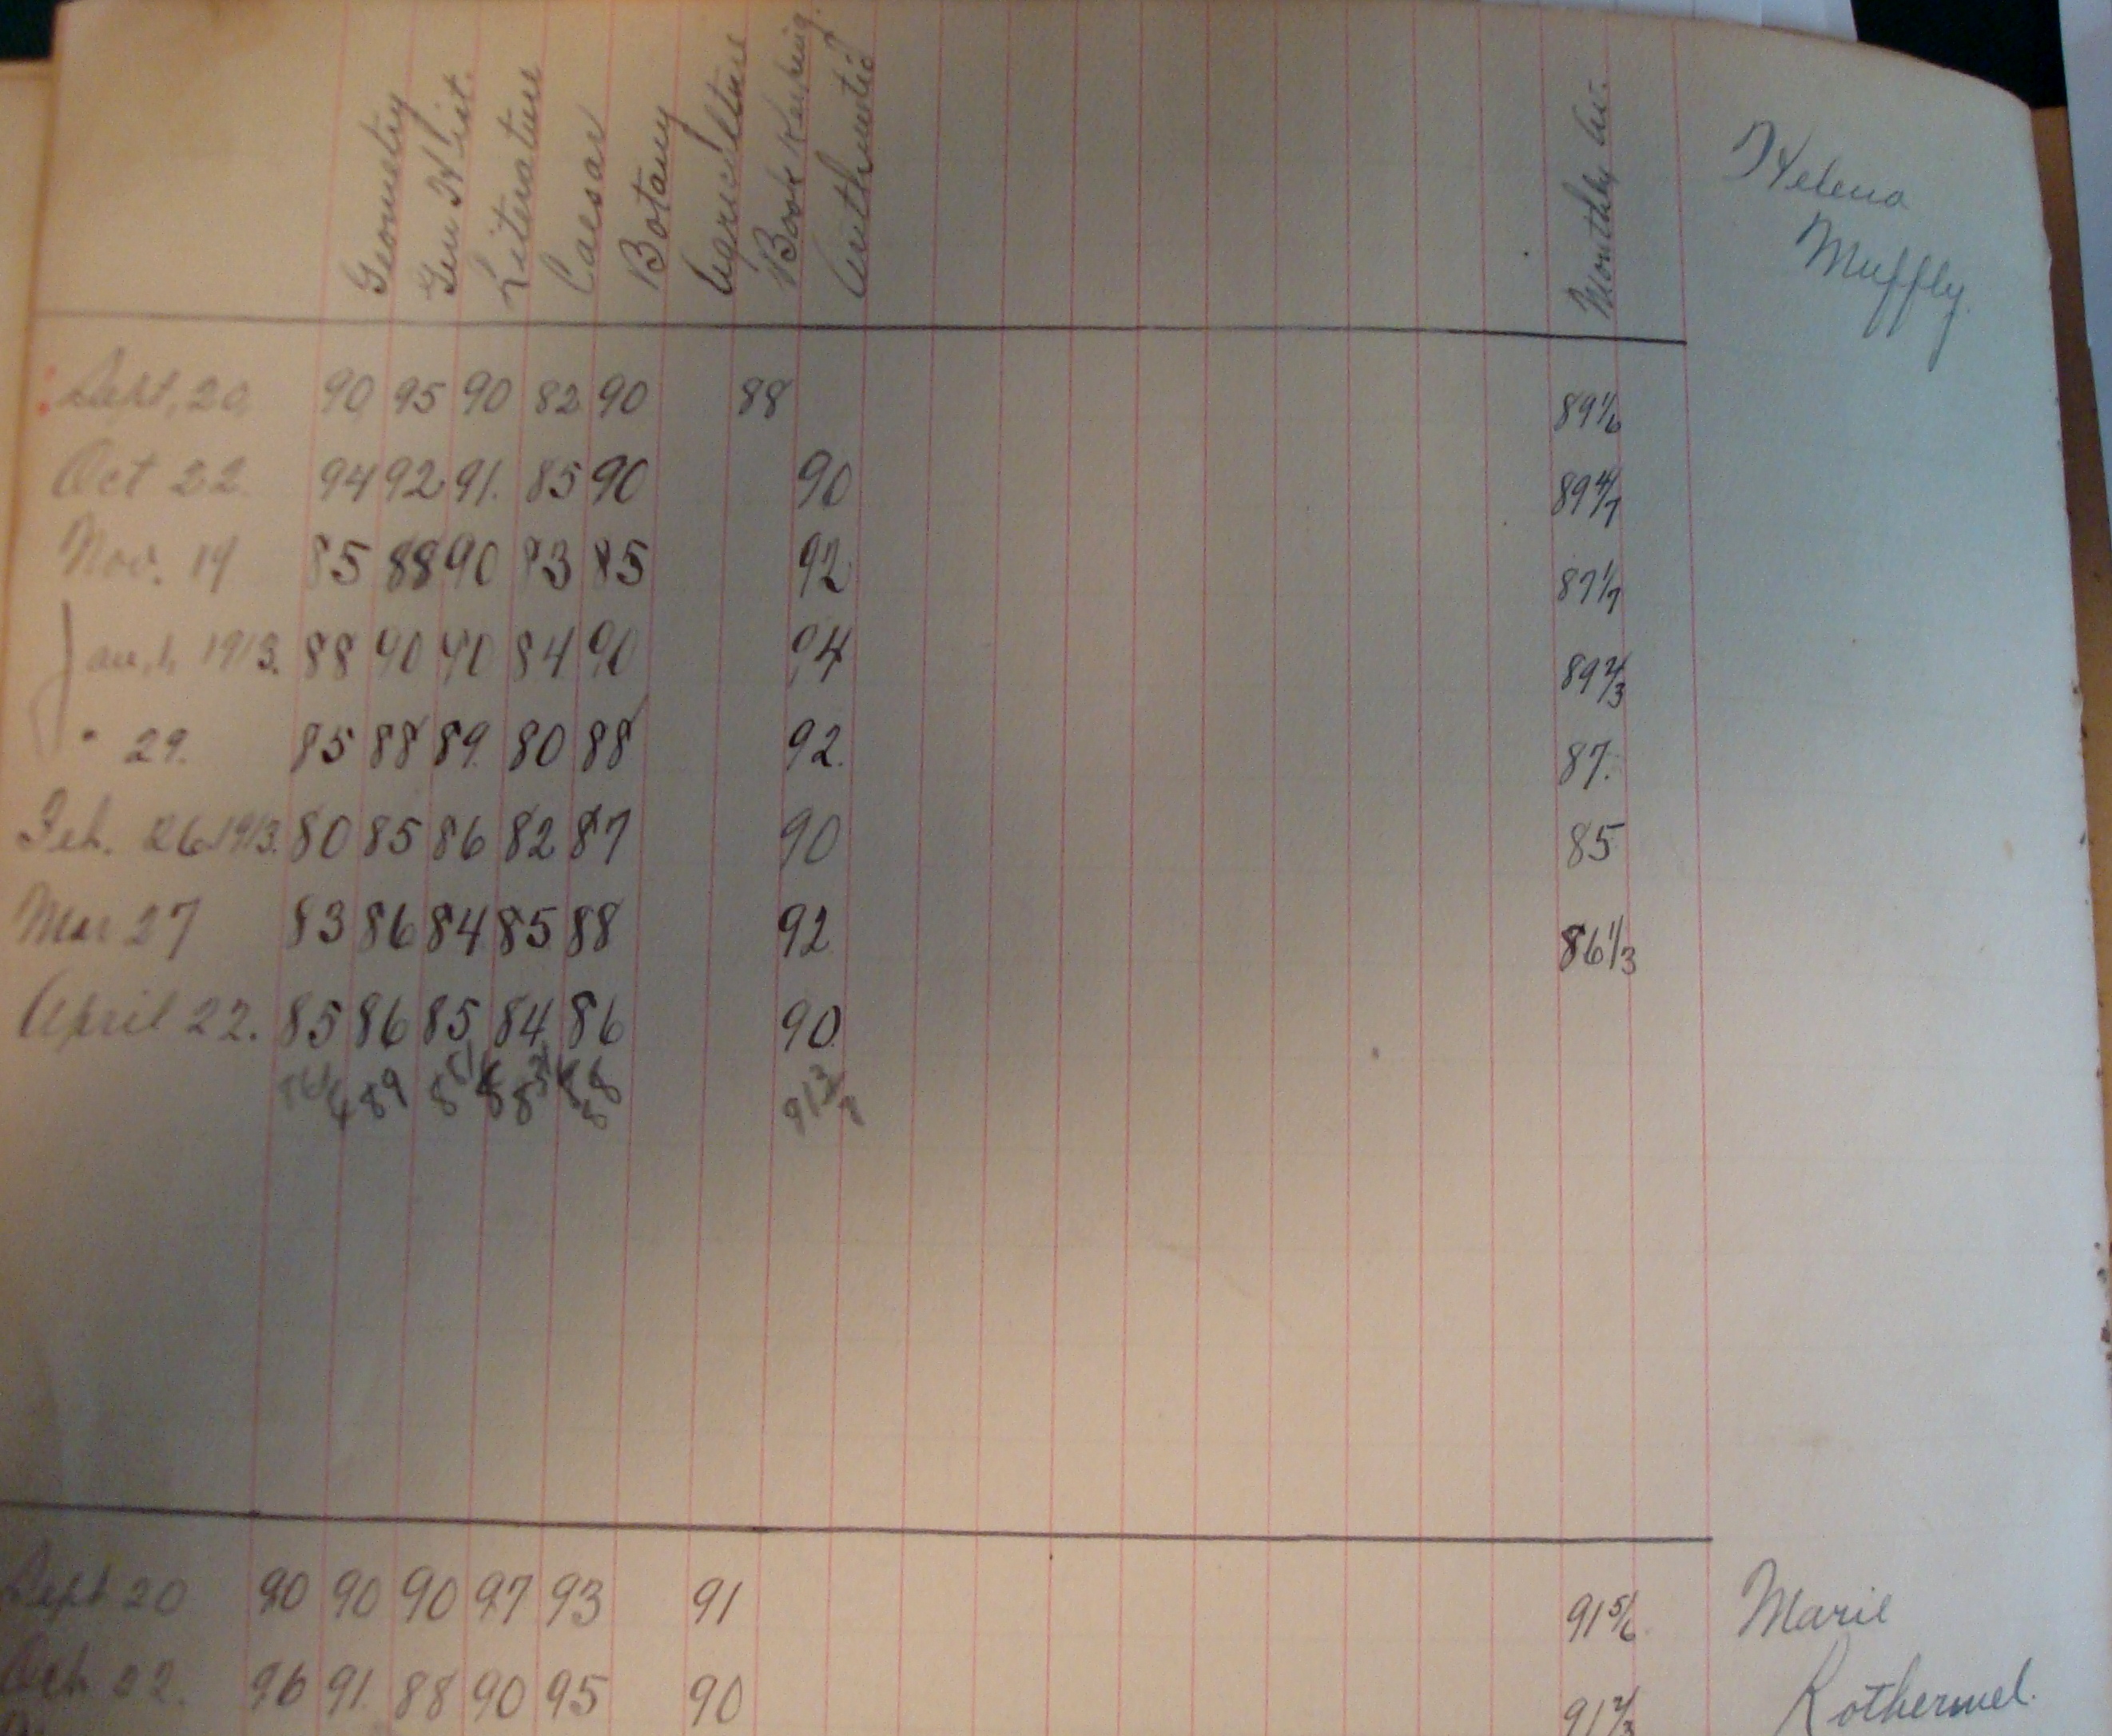 Geometry Gen Hist. Literature Caesar Botany Agriculture Book Keeping Arithmetic Monthly Av.
Helena
Muffly.
Sept. 20 90 95 90 82 90 88 89 1/6
Oct 22. 94 92 91. 85 90 90 89 4/7
Nov. 19 85 88 90 83 85 92 87 1/7
Jan. 1, 1913. 88 90 90 84 90 94 89 2/3
" 29. 85 88 89. 80 88 92. 87.
Feb. 26 1913. 80 85 86 82 87 90 85
Mar 27 83 86 84 85 88 92 86 1/3
April 22. 85 86 85 84 86 90
89 88 91 3/8
Sept 20 90 90 90 97 93 91 91 5/6 Marie
Oct. 22. 96 91 88 90 95 90 91 2/3 Rothermel.